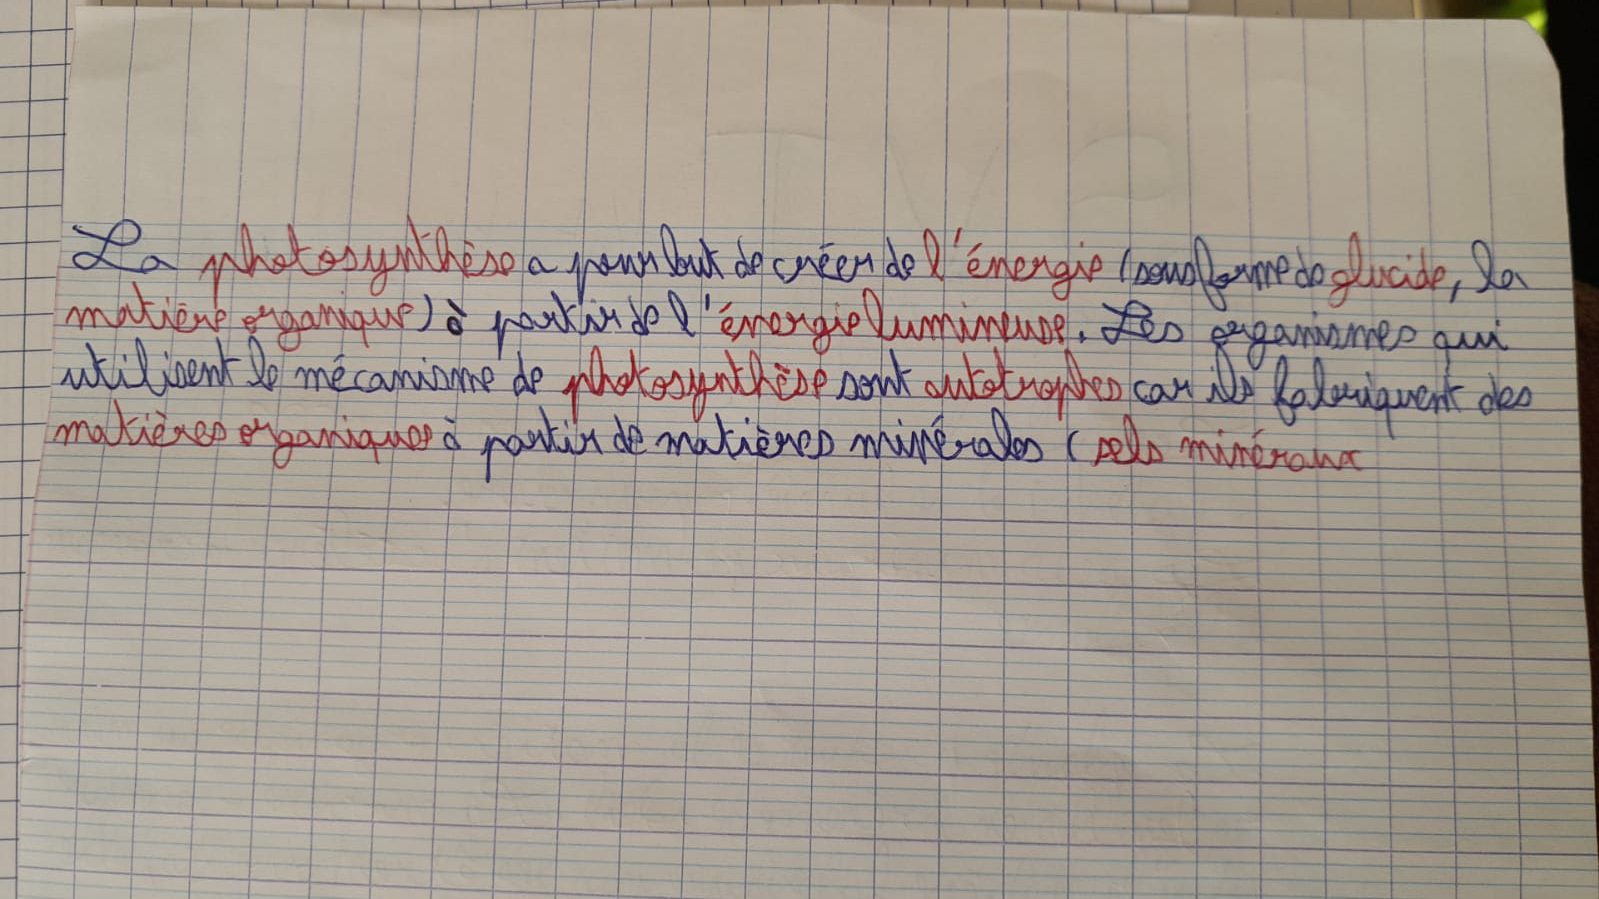 La photosynthèse a pour but de créer de l'énergie (sous forme de glucide, la
matière organique) à partir de l'énergie lumineuse. Les organismes qui
utilisent le mécanisme de photosynthèse sont autotrophes car ils fabriquent des
matières organiques à partir de matières minérales (sels minéraux